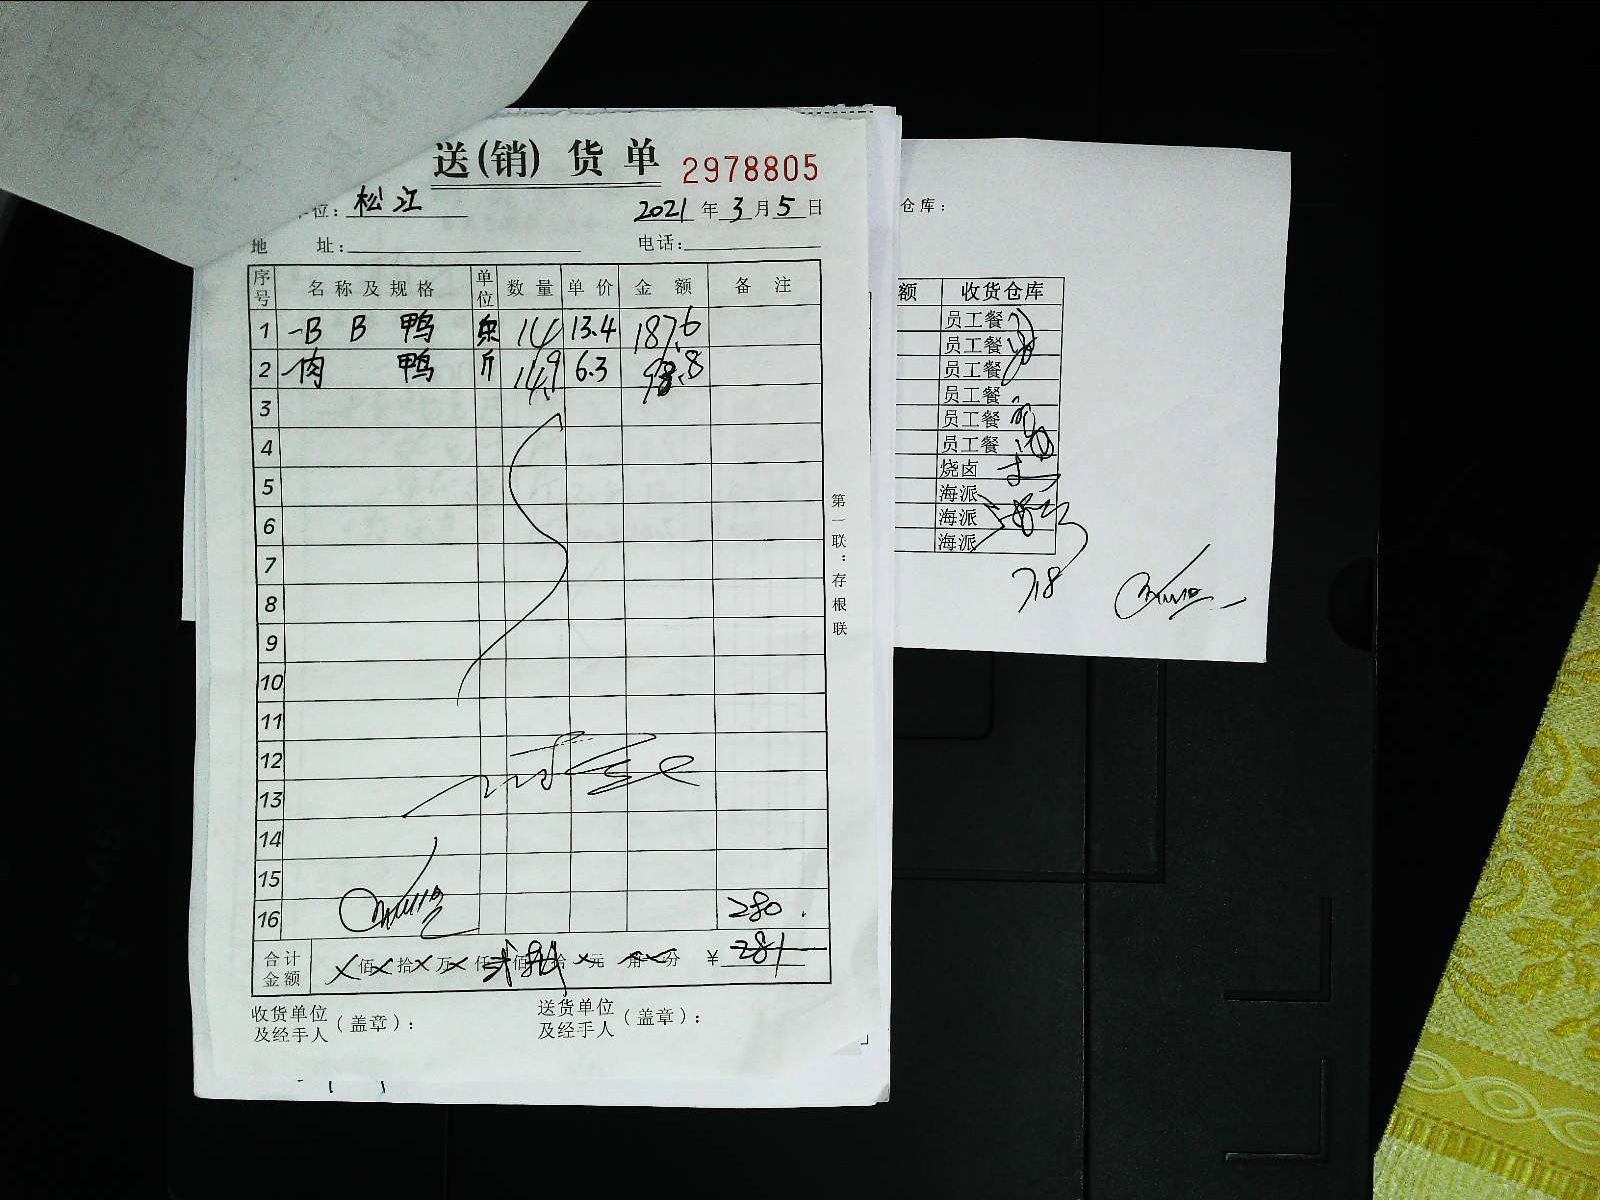 送(销)货单 2978805
位: 松江 2021年3月5日
地 址: 电话:
序号 名称及规格 单位 数量 单价 金额 备注
1 B B 鸭 14 13.4 187.6
2 肉 鸭 斤 14.9 6.3 93.8
3
4
5
6
7
8
9
10
11
12
13
14
15
16 280.
合计金额 佰 拾 万 仟 贰 佰 捌 拾 元 角 分 ¥ 281
收货单位及经手人(盖章): 送货单位及经手人(盖章):
第一联:存根联
仓库:
额 收货仓库
员工餐
员工餐
员工餐
员工餐
员工餐
员工餐
烧卤
海派
海派
海派